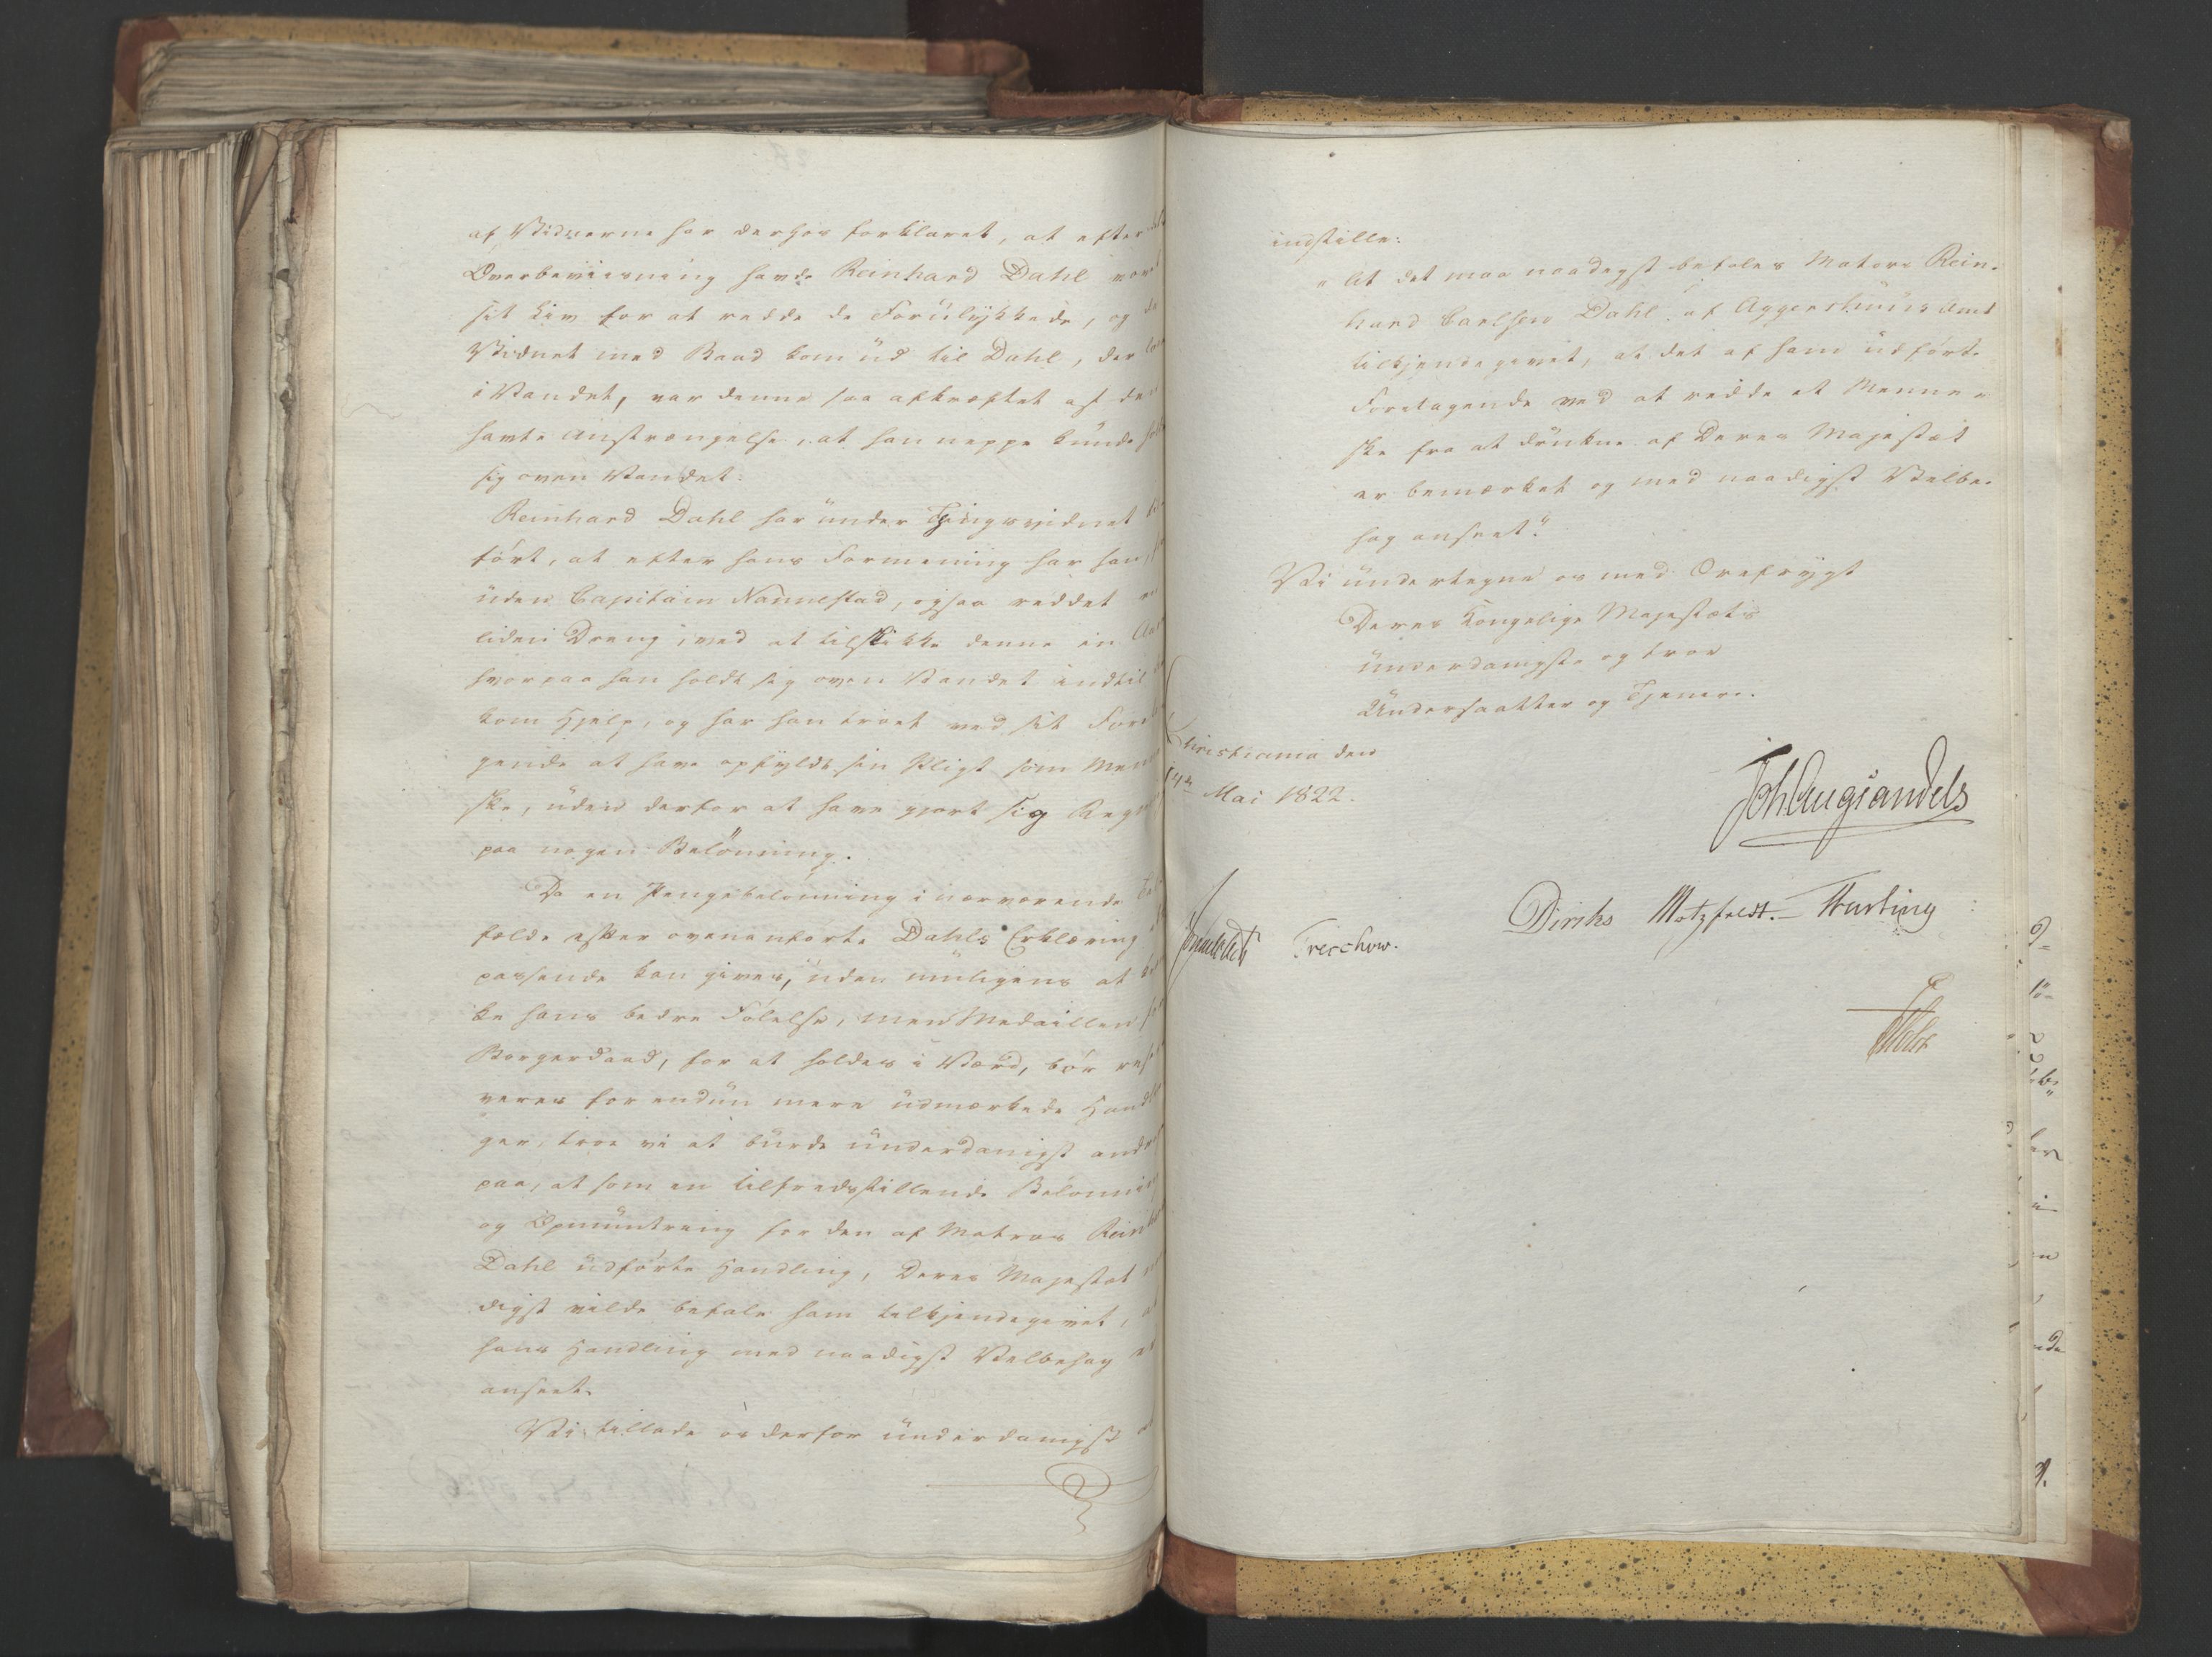 af Vidnerne har derhos forklaret, at efter
Overbeviisning havde Reinhard Dahl vovet
sit Liv for at redde de Forulykkede, og da
Vidnet med Baad kom ud til Dahl, der
i Vandet, var denne saa afkræftet af den
havte Anstrængelse, at han neppe kunde
sig oven Vandet.
Reinhard Dahl har under Thingsvidnet
ført, at efter hans Formening har han,
uden Capitain Nannestad, ogsaa reddet en
liden Dreng, ved at tilstikke denne en Aare
hvorpaa han holdt sig oven Vandet indtil
kom Hjelp, og har han troet ved sit Foreta
gende at have opfyldt sin Pligt som Menne
ske, uden derfor at have gjort sig Regning
paa nogen Belønning.
Da en Pengebelønning i nærværende Til
fælde efter ovenanførte Dahls Erklæring
passende kan gives, uden muligens at
ke hans bedre Følelse, men Medaillen
Borgerdaad, for at holdes i Værd, bør reser
veres for endnu mere udmærkede Handlin
ger, troe vi at burde underdanigst andrage
paa, at som en tilfredsstillende Belønning
og Opmuntring for den af Matros Reinhard
Dahl udførte Handling, Deres Majestæt naa
digst vilde befale ham tilkjendegivet, at
hans Handling med naadigst Velbehag er
anseet.
Vi tillade os derfor underdanigst at
indstille:
"At det maa naadigst befales Matros Rein-
hard Carlsen Dahl af Aggershuus Amt
tilkjendegivet, at det af ham udførte
Foretagende ved at redde et Menne-
ske fra at drukne af Deres Majestæt
er bemærket og med naadigst Velbe-
hag anseet."
Vi undertegne os med Ærefrygt
Deres Kongelige Majestæts
underdanigste og troe
Undersaatter og Tjenere.
Christiania den
14de Mai 1822.
Joh Aug Sandels
Sommerhielm Treschow. Diriks Motzfeldt. Krebting
Holst